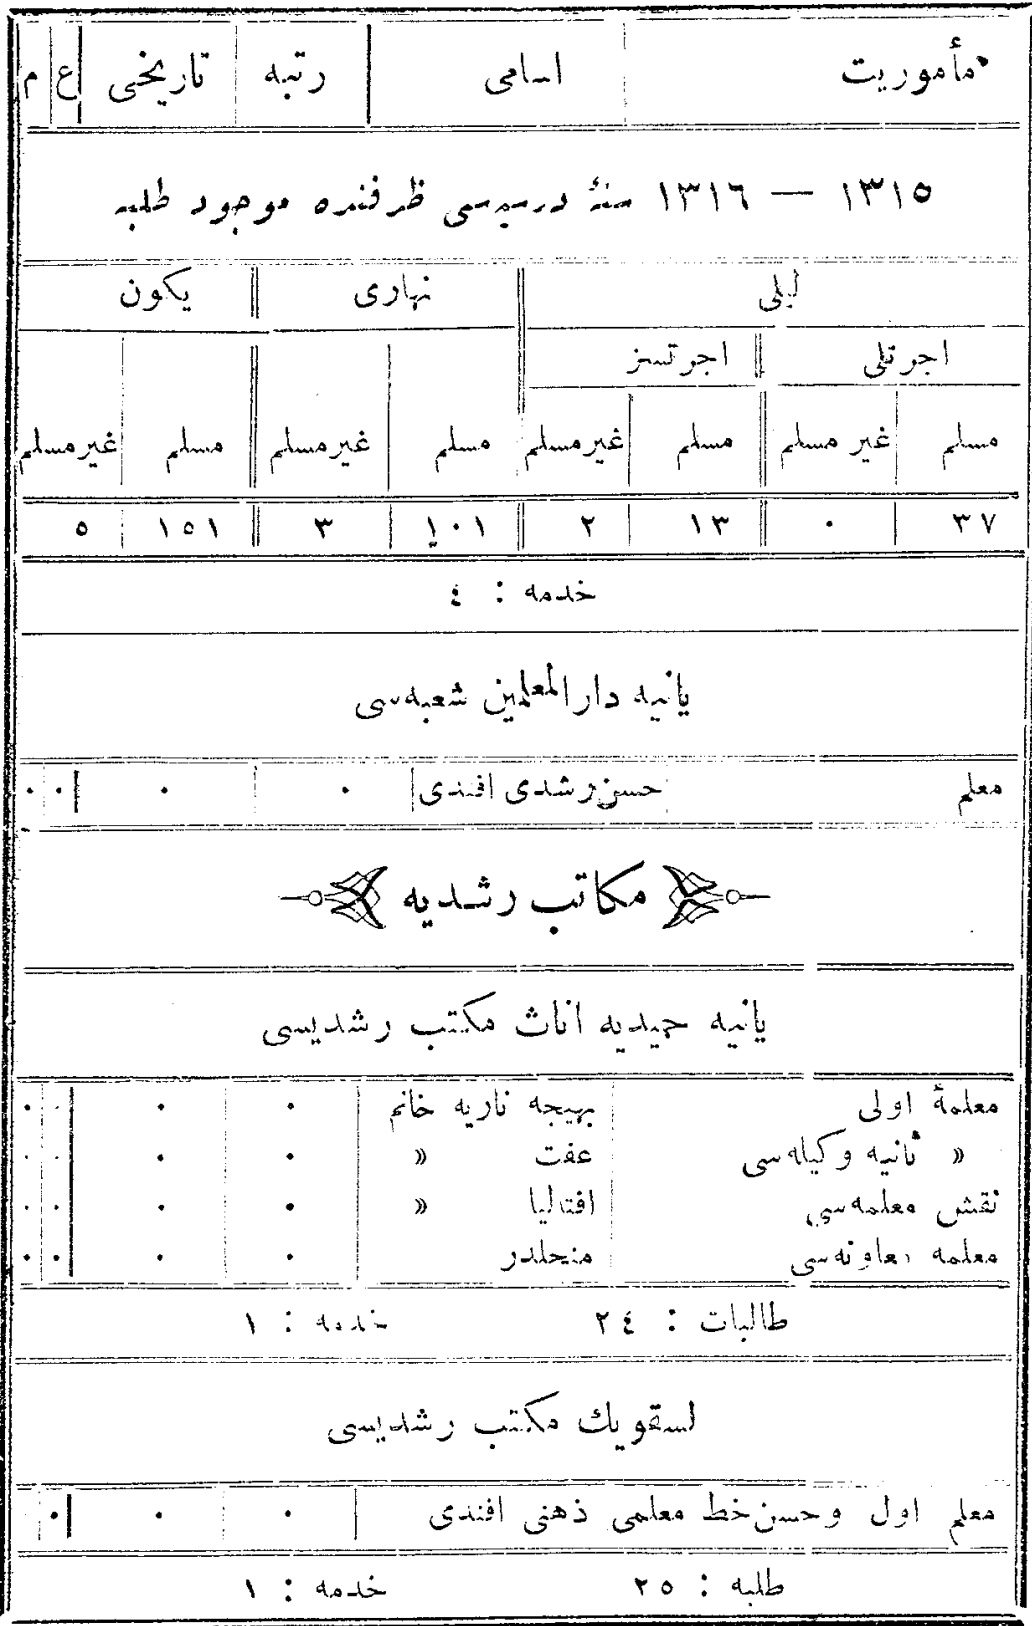 مأموريت اسامى رتبه تاريخى ع م
١٣١٥ — ١٣١٦ سنۀ درسيه‌سى ظرفنده موجود طلبه
ليلى نهارى يكون
اجرتلى اجرتسز
مسلم غير مسلم مسلم غيرمسلم مسلم غيرمسلم مسلم غيرمسلم
٣٧ ٠ ١٣ ٢ ١٠١ ٣ ١٥١ ٥
خدمه : ٤
يانيه دارالمعلمين شعبه‌سى
معلم حسن رشدى افندى ٠ ٠ ٠ ٠
مكاتب رشديه
يانيه حميديه اناث مكتب رشديسى
معلمۀ اولى بهيجه ناريه خانم ٠ ٠ ٠ ٠
« ثانيه وكيله‌سى عفت « ٠ ٠ ٠ ٠
نقش معلمه‌سى افتاليا « ٠ ٠ ٠ ٠
معلمه معاونه‌سى منحلدر ٠ ٠ ٠ ٠
طالبات : ٢٤ خدمه : ١
لسقويك مكتب رشديسى
معلم اول وحسن خط معلمى ذهنى افندى ٠ ٠ ٠
طلبه : ٢٥ خدمه : ١